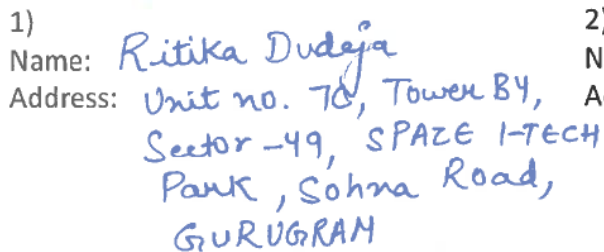 1)
Name: Ritika Dudeja
Address: Unit no. 70, Tower B4,
Sector-49, SPAZE I-TECH
Park, Sohna Road,
GURUGRAM
2)
N
A